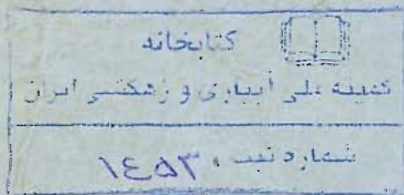 کتابخانه
کمیته ملی آبیاری و زهکشی ایران
شماره ثبت ، ۱۴۵۳